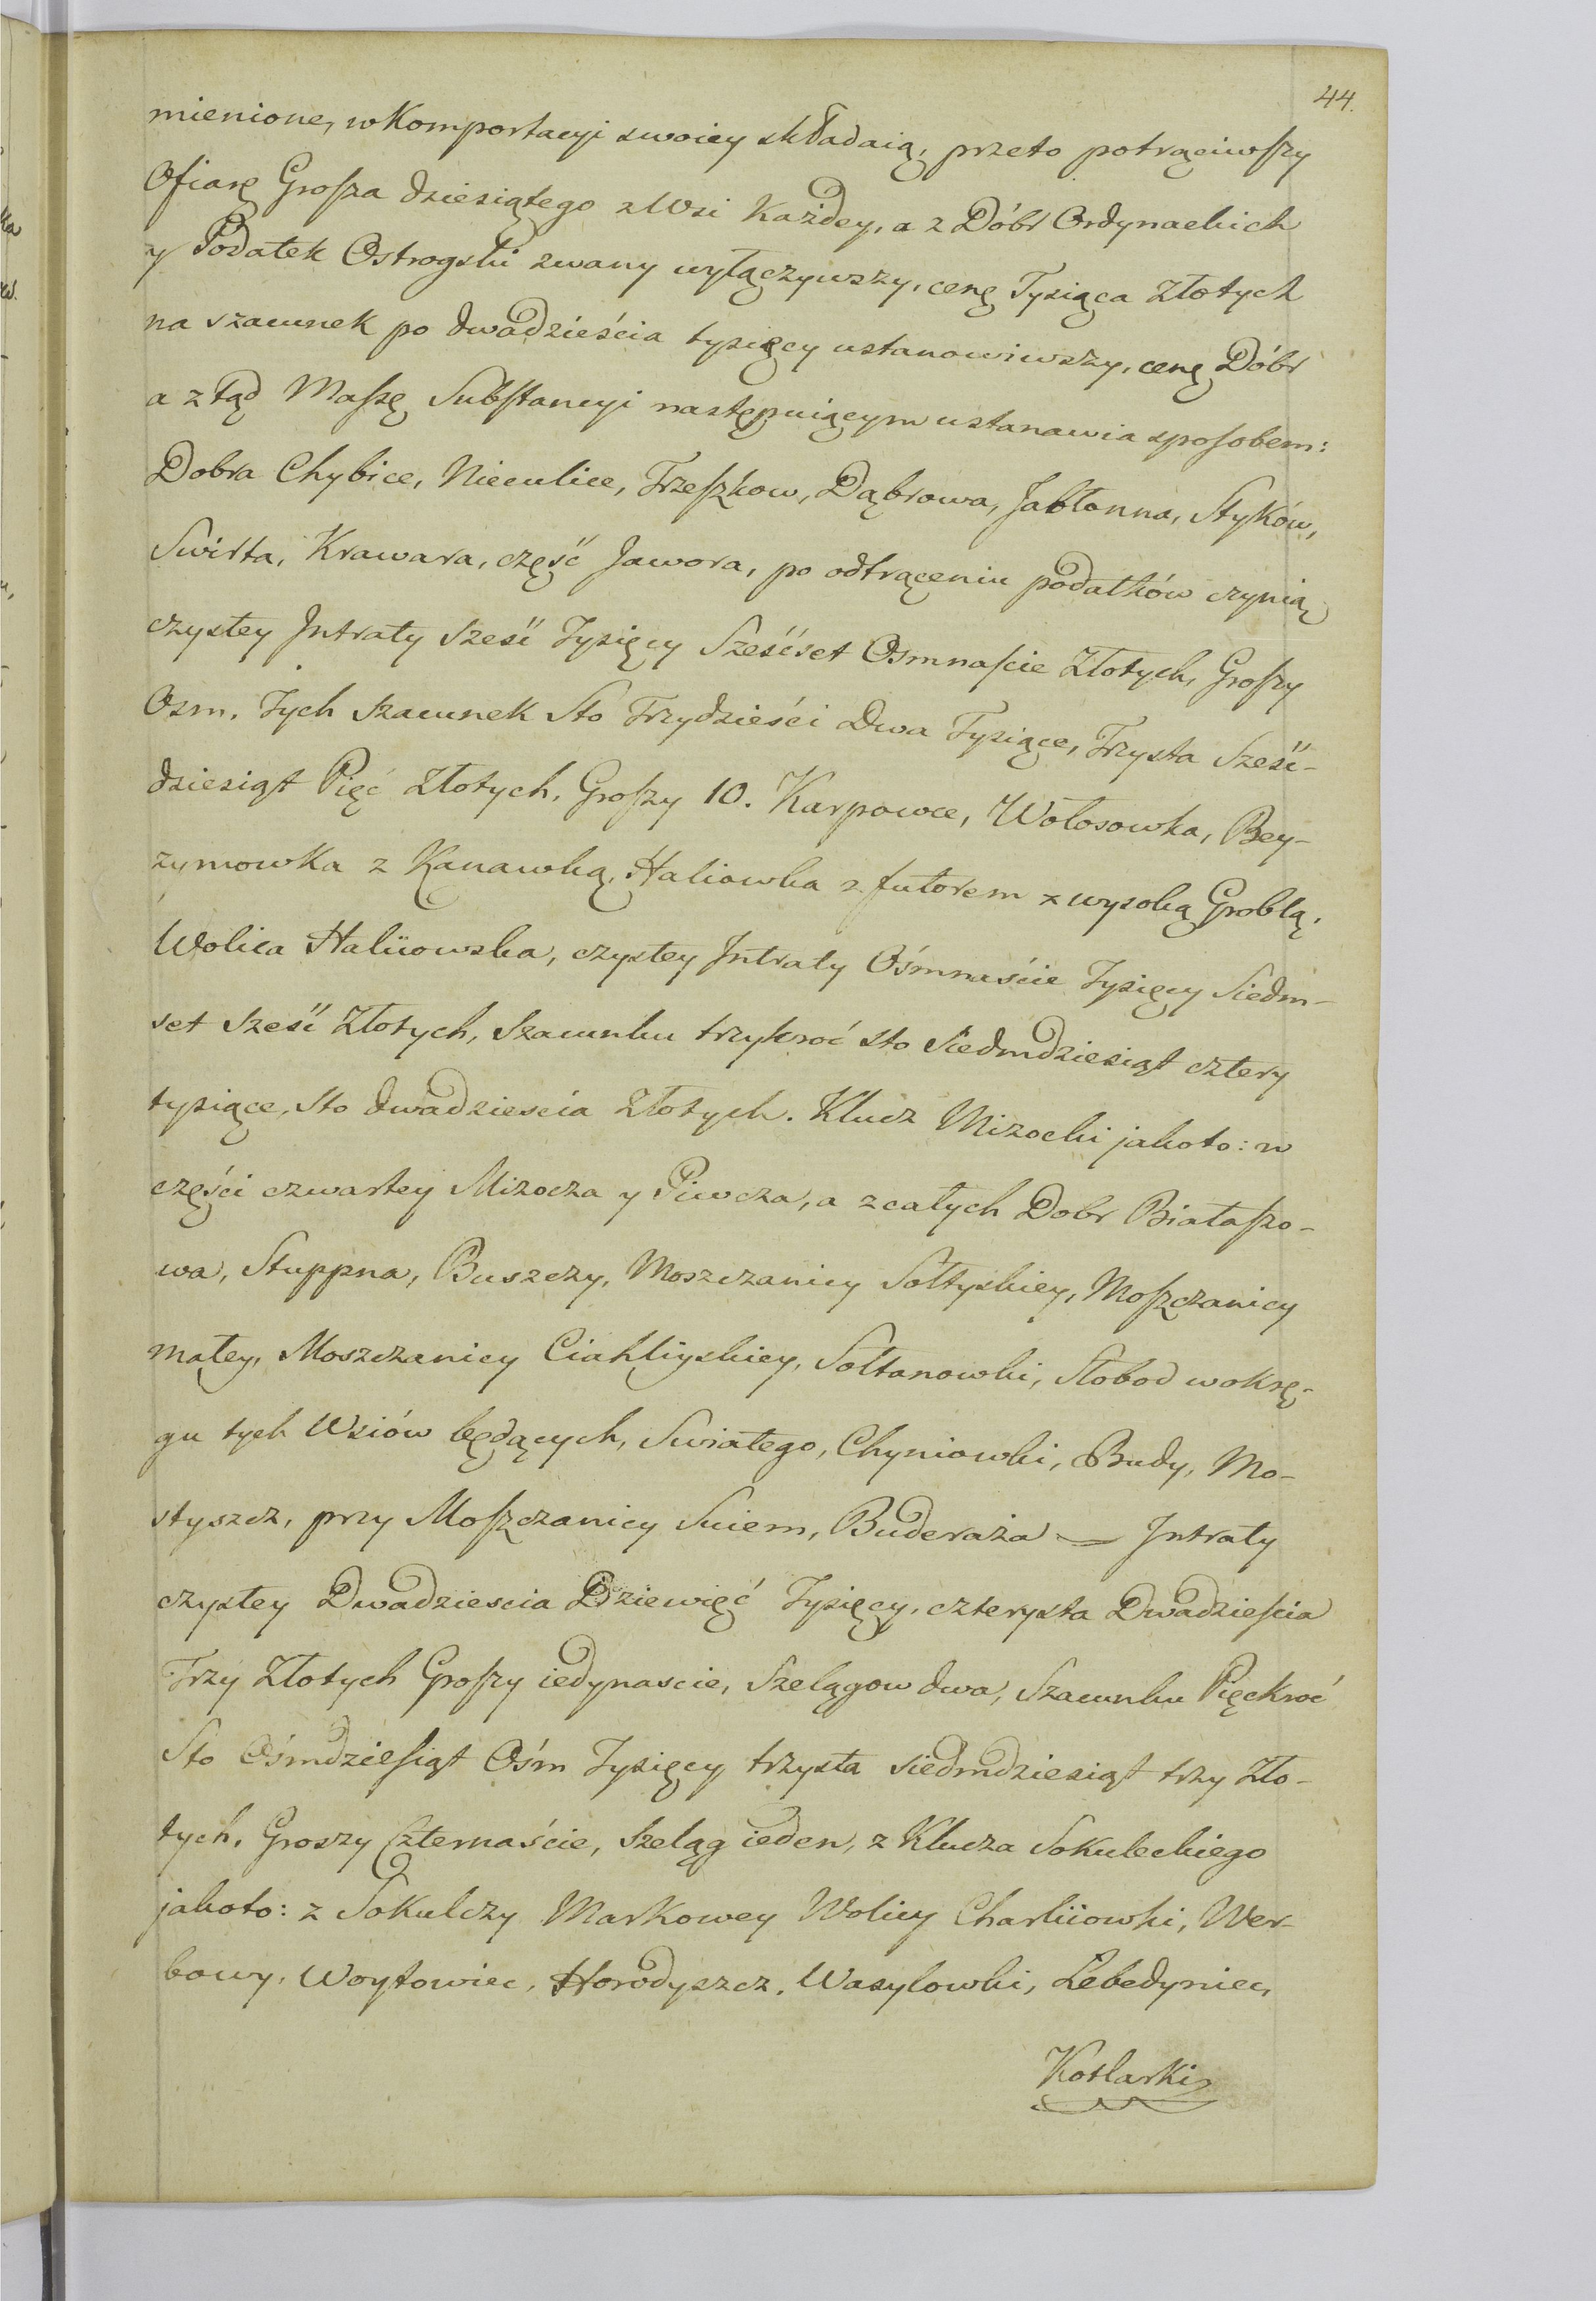 44.
mienione, w Komportacyi swoiey składaią, przeto potrąciwszy
Ofiarę Grosza dziesiątego z Wsi Każdey, a z Dóbr Ordynackich
y Podatek Ostrogski zwany wyłączywszy, cenę Tysiąca Złotych
na szacunek po dwadzieścia tysięcy ustanowiwszy, cenę Dóbr
a ztąd Massę Substancyi następuiącym ustanawia sposobem:
Dobra Chybice, Nieculice, Trzeszkow, Dąbrowa, Jabłonna, Styków,
Swirta, Krawara, część Jawora, po odtrąceniu podatków czynią
czystey Intraty sześć Tysięcy Sześćset Osmnascie Złotych, Groszy
Osm. Tych szacunek Sto Trzydzieści Dwa Tysiące, Trzysta Sześć-
dziesiąt Pięć Złotych, Groszy 10. Karpowce, Wołosowka, Bey-
zymowka z Kanawką, Haliowka z futorem z wysoką Groblą,
Wolica Haliiowska, czystey Intraty Ośmnaście Tysięcy Siedm-
set sześć Złotych, szacunku trzykroć sto siedmdziesiąt cztery
tysiące, sto dwadziescia Złotych. Klucz Mizocki jakoto: w
części czwartey Mizocza y Piwcza, a z całych Dobr Białaszo-
wa, Stuppna, Buszczy, Moszczanicy Sołtyskiey, Moszczanicy
małey, Moszczanicy Ciahliyskiey, Sołtanowki, Słobod w okrę-
gu tych Wsiów będących, Swiatego, Chyniowki, Budy, Mo-
styszcz, przy Moszczanicy Suiem, Buderaża — Intraty
czystey Dwadziescia Dziewięć Tysięcy, czterysta Dwadziescia
Trzy Złotych Groszy iedynascie, Szelągow dwa, Szacunku Pięckroć
Sto Ośmdziesiąt Ośm Tysięcy trzysta siedmdziesiąt trzy Zło-
tych, Groszy Czternaście, Szeląg ieden, z Klucza Sokuleckiego
jakoto: z Sokulczy Markowey Wolicy Charliiowki, Wer-
bowy, Woytowiec, Horodyszcz, Wasylowki, Lebedyniec,
Kotlarki